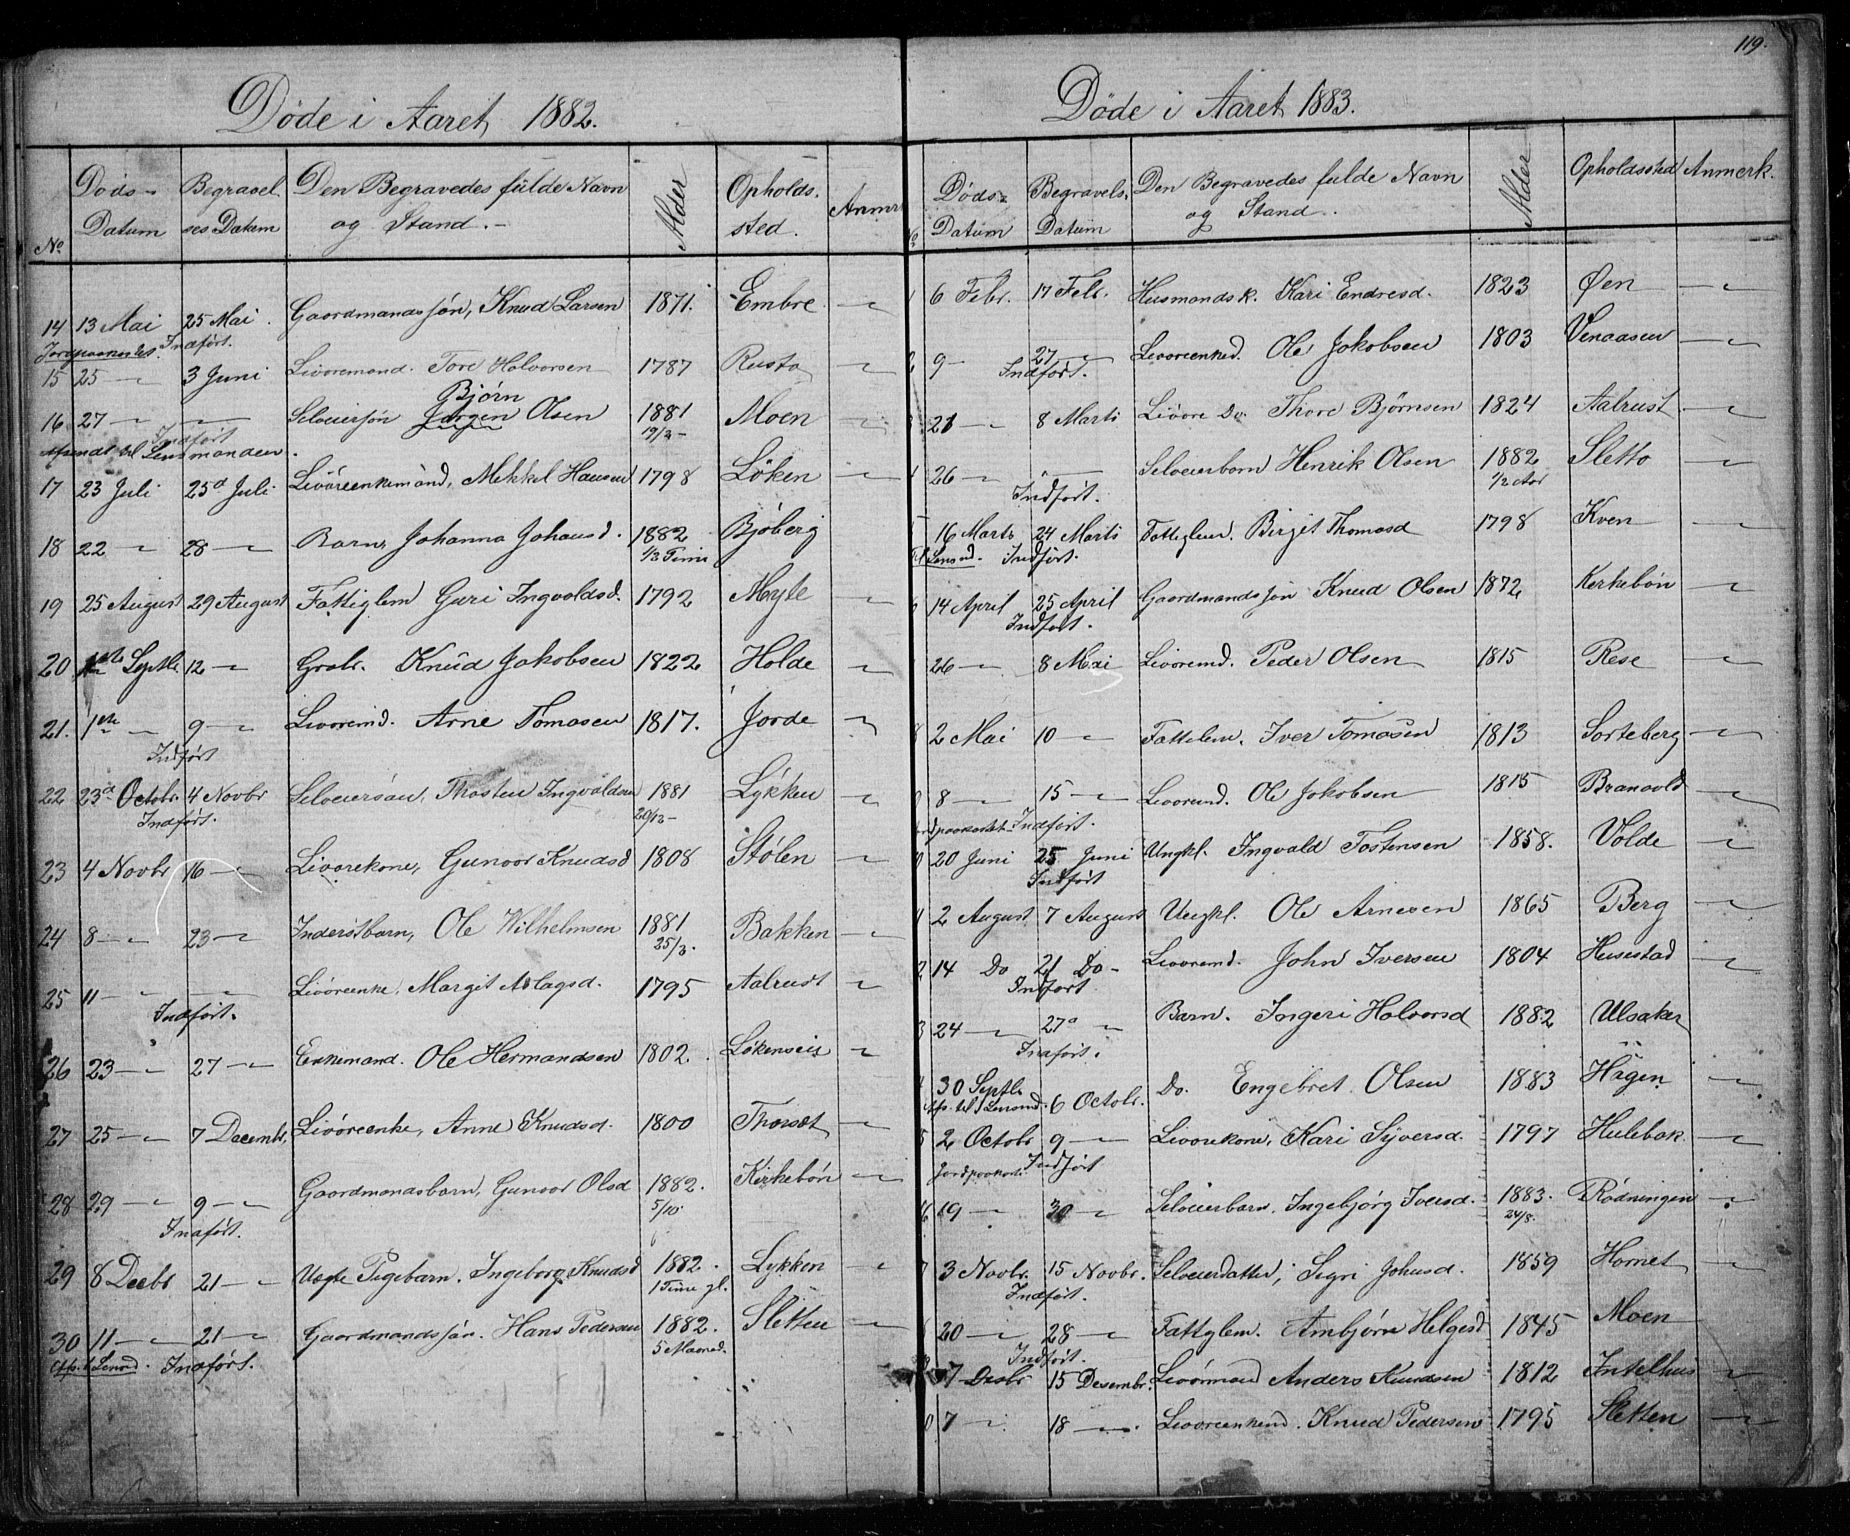 119.
Døde i Aaret 1882.
No Døds-Datum Begravelses Datum Den Begravedes fulde Navn og Stand.- Alder Opholdssted. Anmr
14 13 Mai 25 Mai. Gaardmandssøn, Knud Larsen 1871. Embre "
Jordpaakastet. Indført.
15 25 " 3 Juni Livøremand. Tore Halvorsen 1787 Rusto "
Bjørn
16 27 " " Selveiersøn Jørgen Olsen 1881 19/3 Moen "
Indført
Afsendt til Lensmanden.
17 23 Juli 25d Juli Livøreenkemand, Mekkel Hansen 1798 Løken "
18 22 " 28 " Barn, Johanna Johansd. 1882 1/3 Time Bjøberg "
19 25 August 29 August Fattiglem Guri Ingvoldsd. 1792 Myte "
20 1ste Septbr 12 " Grbr. Knud Jakobsen 1822 Holde "
21. 1ste " 9 " Livøremd. Arne Tomasen 1817. Jorde "
Indført
22 23d Octobr. 4 Novbr Selveiersøn, Thosten Ingvoldsen 1881 20/12 Lykken "
Indført.
23 4 Novbr 16 " Livørekone, Gunvor Knudsd 1808 Stølen "
24 8 " 23 " Inderstbarn, Ole Wilhelmsen 1881 25/3. Bakken "
25 11 " " Livøreenke, Margit Aslagsd. 1795 Aalrust "
Indført.
26 23 " 27 " Enkemand. Ole Hermandsen 1802. Løkenseie "
27 25 " 7 Decembr, Livøreenke, Anne Knudsd. 1800 Thorset "
28 29 " 9 " Gaardmandsbarn, Gunvor Olsd 1882. 5/10. Kirkebøn "
Indført.
29 8 Decbr 21 " Uegte Pigebarn. Ingeborg Knudsd 1882. 1 Time gl. Lykken "
30 11 " 21 " Gaardmandssøn. Hans Pedersen 1882. 5 Maaned. Sletten "
Afs. t. Lensmd. Indført.
Døde i Aaret 1883.
No Døds-Datum Begravels. Datum Den Begravedes fulde Navn og Stand. Alder Opholdssted Anmerk.
1 6 Febr. 17 Febr. Husmandsk. Kari Endresd. 1823 Øen "
2 9 " 27 " Livøreenkd. Ole Jakobsen 1803 Venaasen "
Indført.
3 21 " 8 Marts Livøre Do Thore Bjørnsen 1824 Aalrust "
4 26 " " Selveierbarn Henrik Olsen 1882 1/2 Aar Sletto "
Indført.
5 16 Marts 24 Marts Fattiglem. Birgit Thomasd 1798 Kven "
Lensmd. Indført.
6 14 April 25 April Gaardmandssøn Knud Olsen 1872 Kerkebøn "
Indført.
26 " 8 Mai Livøremd. Peder Olsen 1815 Rese "
8 2 Mai 10 " Fattiglem. Iver Tomasen 1813 Sorteberg "
8 " 15 " Livøremd. Ole Jakobsen 1815 Branvold "
Jordpaakastet Indført.
20 Juni 25 Juni Ungkl. Ingvald Tostensen 1858. Volde "
Indført
2 August 7 August Ungkl. Ole Arnesen 1865 Berg "
2 14 Do 21 Do Livøremd. John Iversen 1804 Husestad "
Indført.
3 24 " 27d " Barn. Ingeri Halvorsd 1882 Ulsaker "
Indført.
30 Septbr 6 Octobr. Do. Engebret Olsen 1883 Hagen "
Afs. til Lensmd.
5 2 Octobr 9 " Livørekone, Kari Syversd. 1797 Hulebak "
Jordpaakast. Indført
6 19 " 30 " Selveierbarn, Ingebjørg Iversd. 1883. 24/8. Rødningen "
3 Novbr. 15 Novbr. Selveierdatter, Sigri Johnsd. 1859 Hornet "
Indført.
20 " 28 " Fattiglem. Ambjørn Helgesd 1845 Moen "
Indført.
7 Decbr 15 Desembr. Livørmand Anders Knudsen 1812 Intelhus "
0 7 " 18 " Livøreenkmd. Knud Pedersen 1795 Sletten "